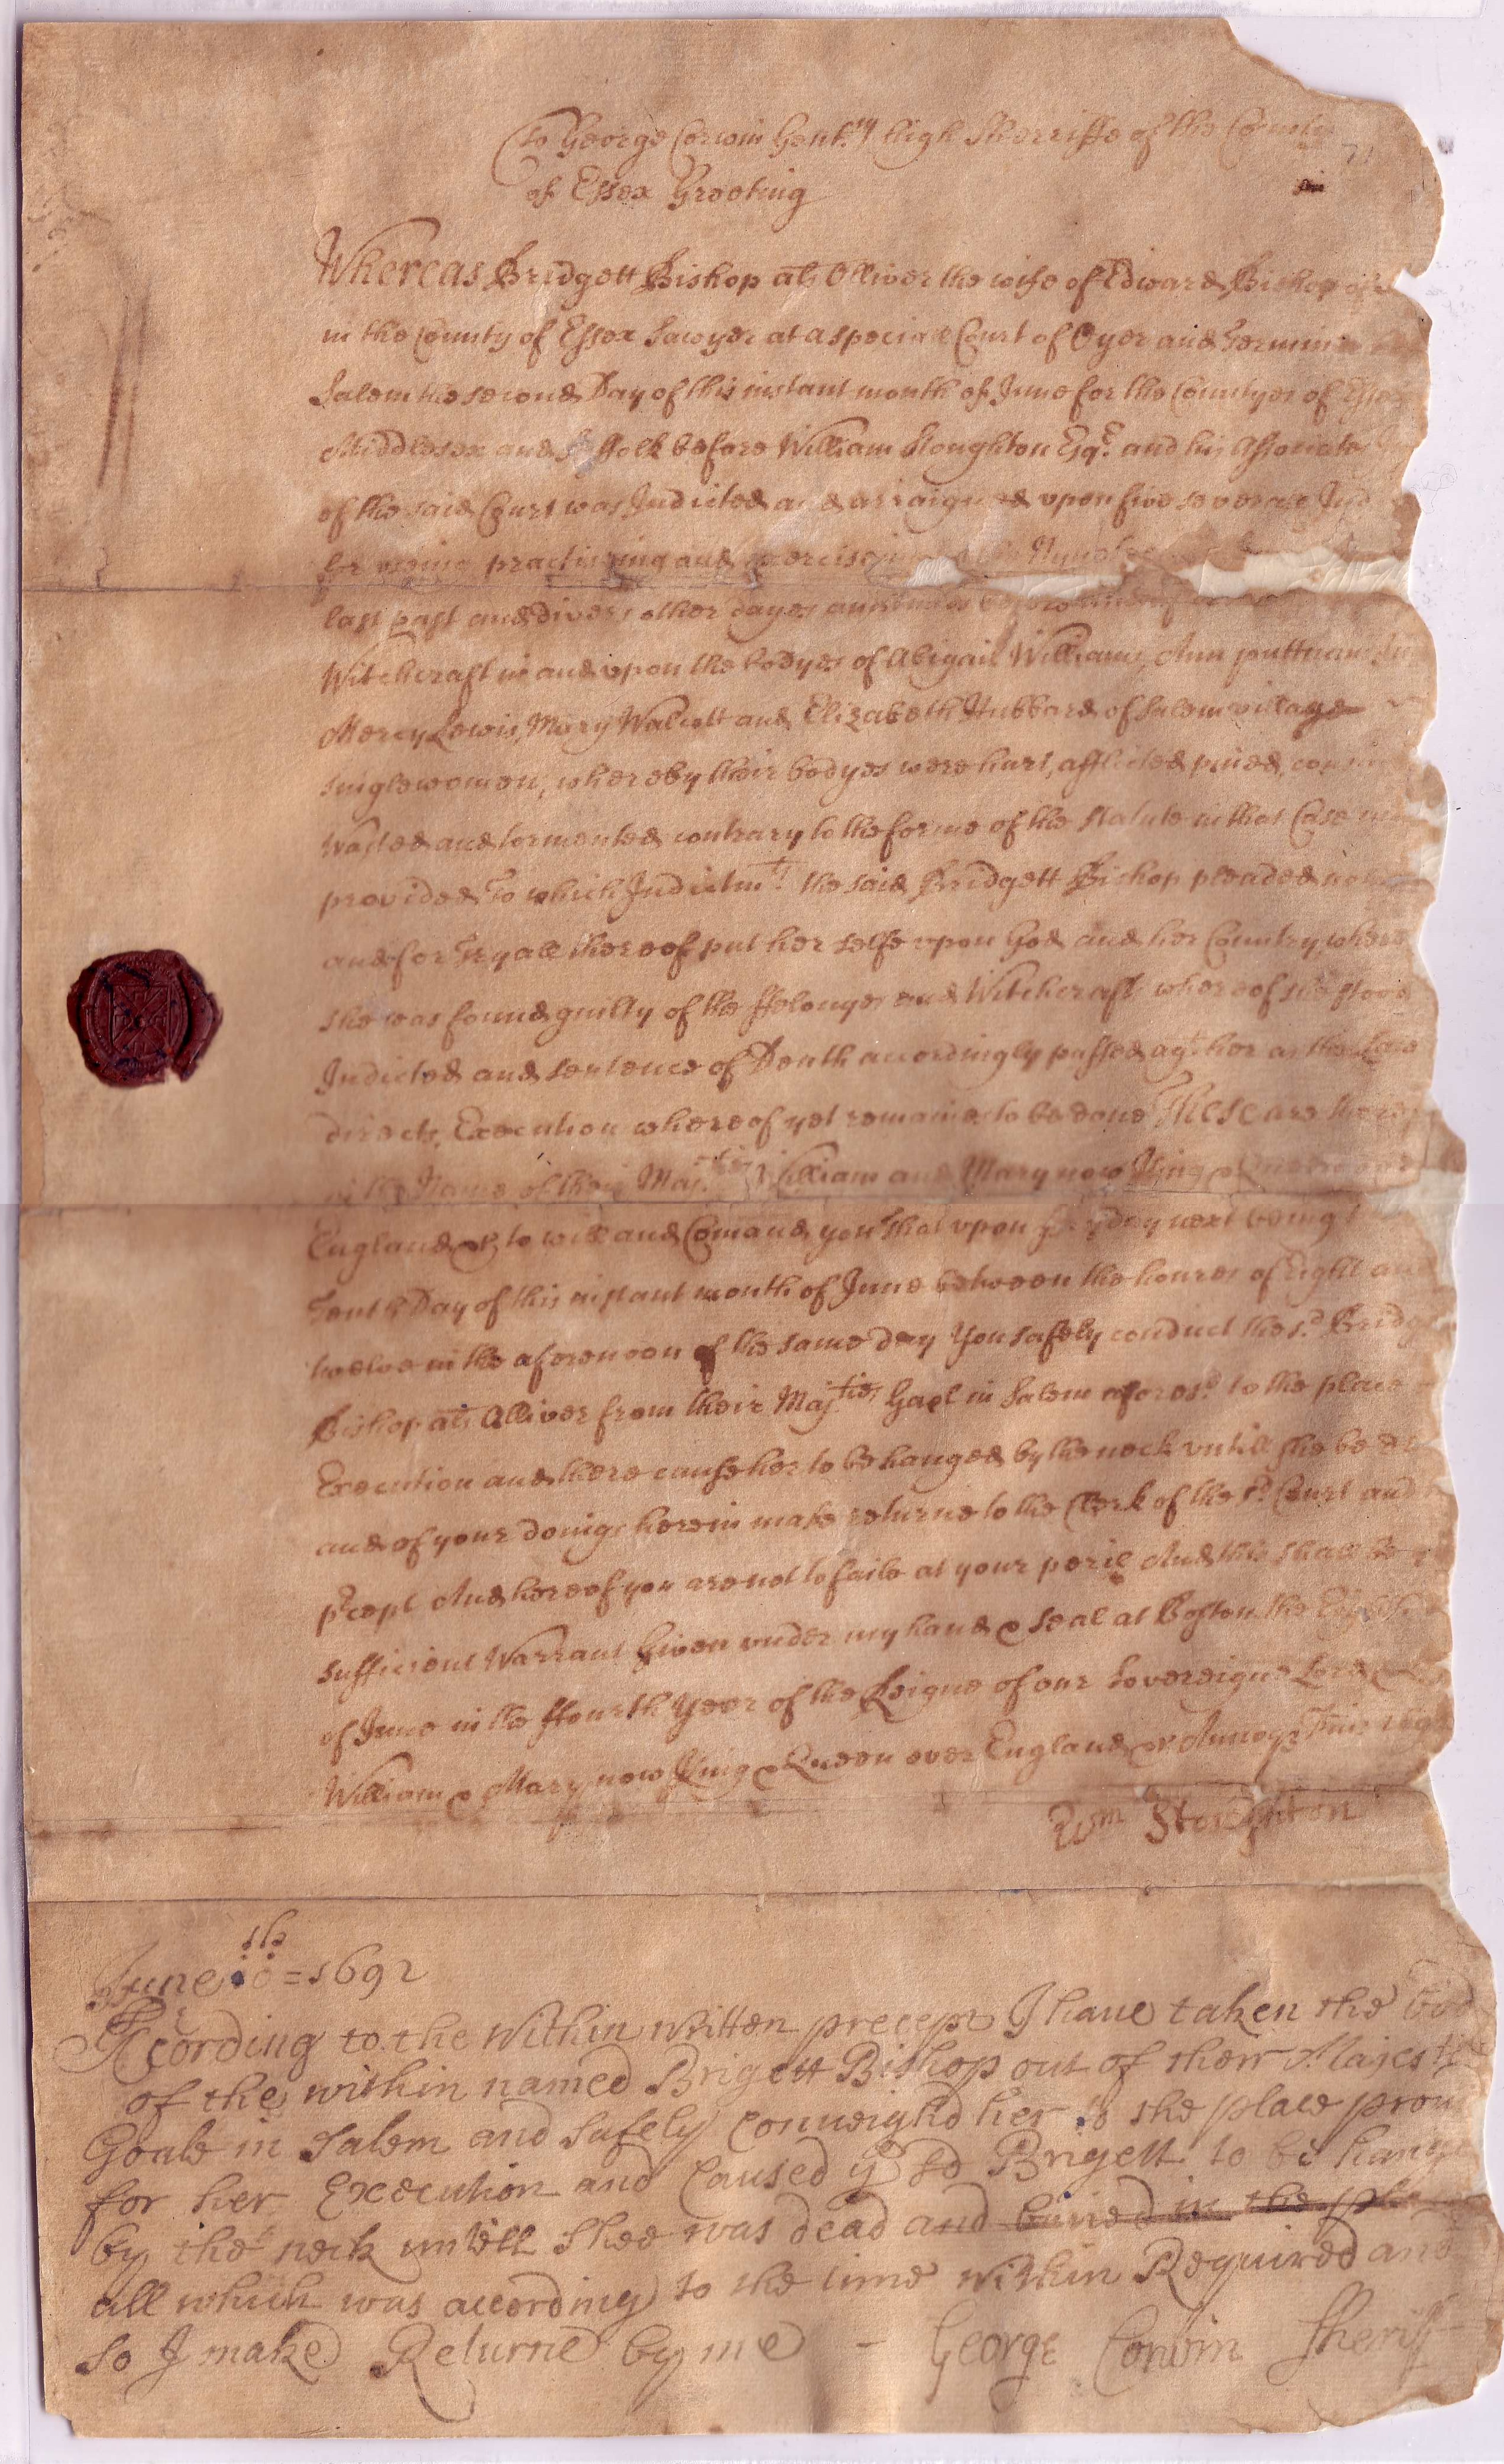 To George Corwin Gent:ⁿ high Sherriffe of the County
of Essex Greeting
Whereas Bridgett Bishop als Olliver the wife of Edward Bishop of
in the County of Essex Sawyer at a speciall Court of Oyer and Termin
Salem the second Day of this instant month of June for the Countyes of Essex
Middlesex and Suffolk before William Stoughton Esqr. and his Associate
of the said Court was Indicted and arraigned upon five severall Ind
for using practissing and exerciseing
last past and divers other dayes and times before and after
Witchcraft in and upon the bodyes of Abigail Williams, Ann puttnam Ju
Mercy Lewis, Mary Walcott and Elizabeth Hubbard of Salem village
singlewomen, whereby their bodyes were hurt, afflicted pined, consu
Wasted and tormented contrary to the forme of the Statute in that Case
provided To which Indictmts the said Bridgett Bishop pleaded not
and for Tryall thereof put her selfe upon God and her Country, where
she was found guilty of the ffelonyes and Witchcrafts whereof she stood
Indicted and sentence of Death accordingly passed agt her as the Law
directs Execution whereof yet remaines to be done These are there
in the Name of their Majties William and Mary now King & Queen over
England &c to will and Comand you That upon Fryday next being
Tenth Day of this instant month of June between the houres of Eight and
twelve in the aforenoon of the same day You safely conduct the sd Bridg
Bishop als Olliver from their Majties Gaol in Salem aforesd to the place
Execution and there cause her to be hanged by the neck untill she be de
and of your doings herein make returne to the Clerk of the sd Court and
pr̄cept And hereof you are not to faile at your peril And this shall be
sufficient Warrant Given under my hand & seal at Boston the Eighth
of June in the ffourth Year of the Reigne of our Sovereigne Lord &
William & Mary now King & Queen over England &c Annoqe Dni 169
Wm Stoughton
June 10th = 1692
Acording to the Within written precept I haue taken the bod
of the within named Brigett Bishop out of their Majesties
Goale in Salem and Safely Conueighd her to the place prou
for her Execution and Caused ye sd Brigett to be hang
by the neck untill Shee was dead and buried in the pla
all which was according to the time within Required and
So I make Returne by me - George Corwin Sheriff